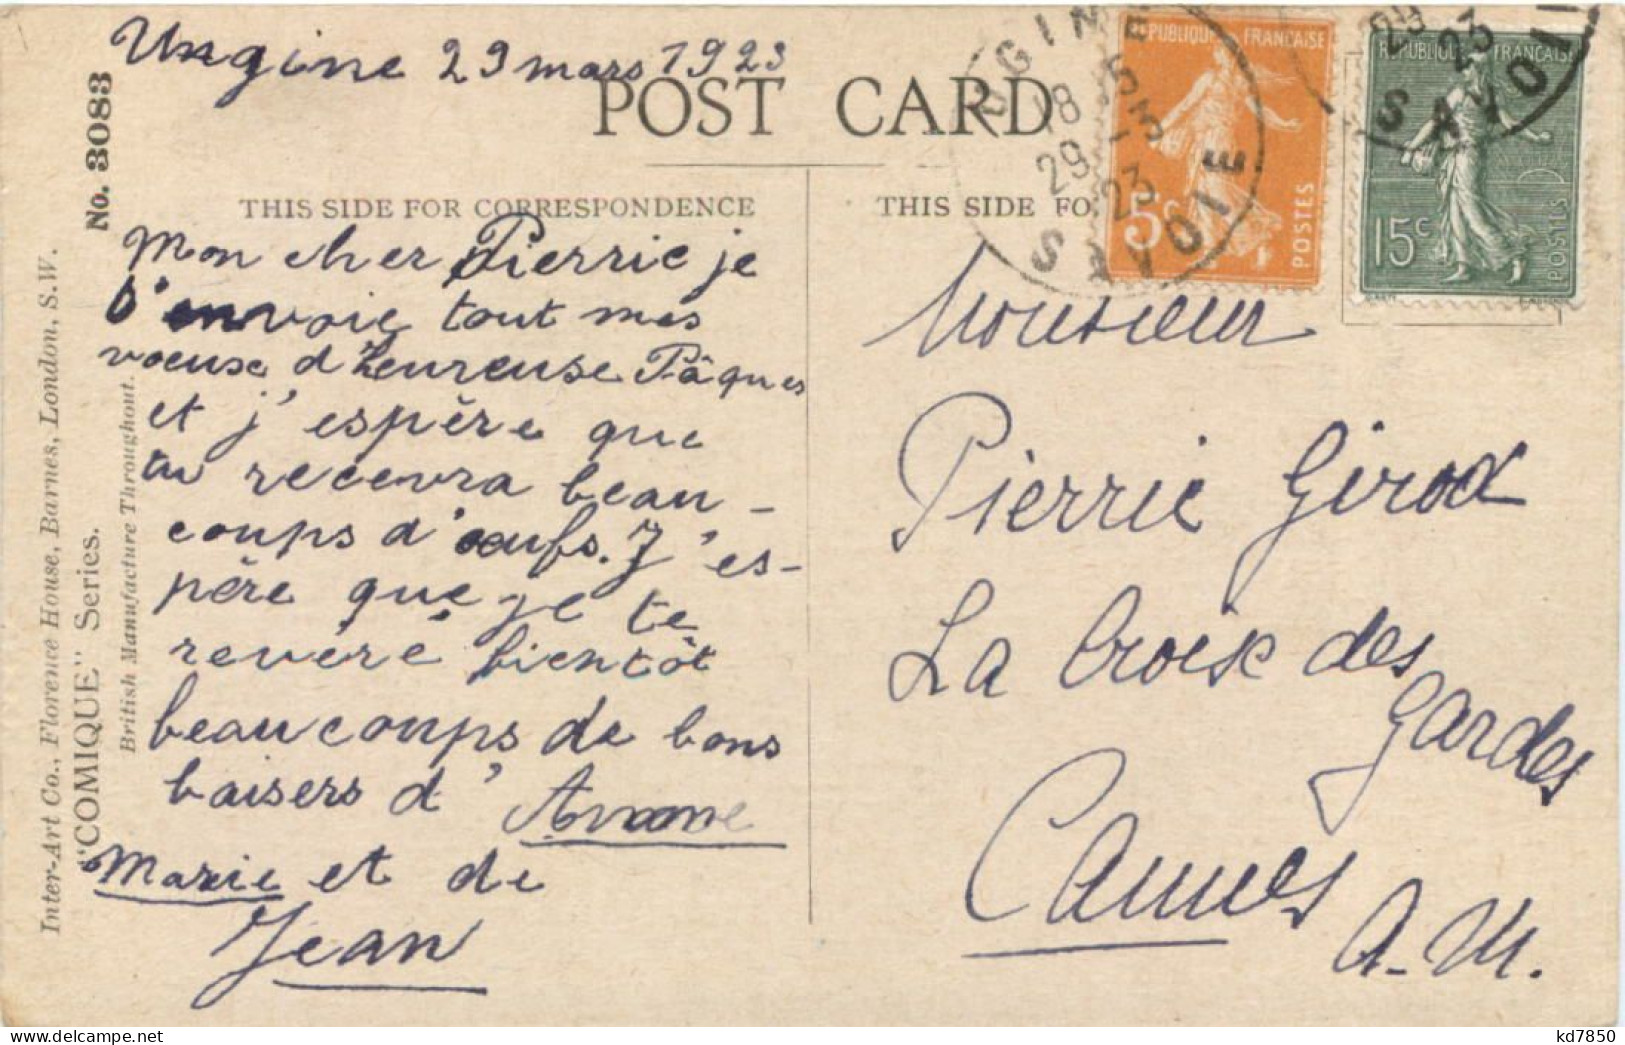 Ungine 29 mars 1923
POST CARD
THIS SIDE FOR CORRESPONDENCE
THIS SIDE FO
No. 3083
Inter-Art Co., Florence House, Barnes, London, S.W.
"COMIQUE" Series.
British Manufacture Throughout.
Mon cher Pierric je
t'envoie tout mes
voeuse d'heureuse Pâques
et j'espère que
tu recevra beau-
coups d'œufs. J'es-
père que je te
reveré bientôt
beaucoups de bons
baisers d'Anne
Marie et de
Jean
UGINE
18 15
29 - 3
23
SAVOIE
REPUBLIQUE FRANÇAISE
5c
POSTES
23
SAVOI
REPUBLIQUE FRANÇAISE
15c
POSTES
Monsieur
Pierric Girod
La Croix des
Gardes
Cannes
A.-M.
kd7850